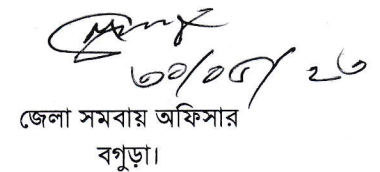 ৩০/০৫/২৩
জেলা সমবায় অফিসার
বগুড়া।